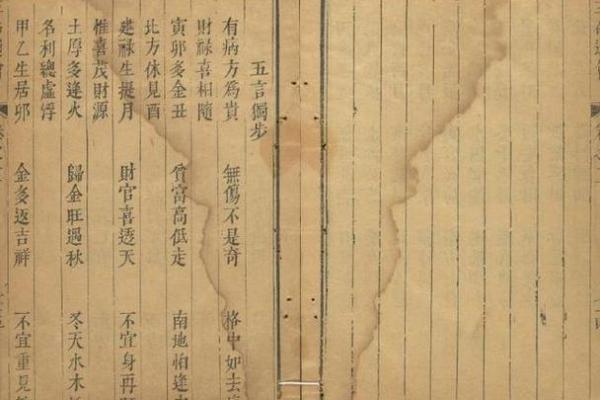 五言獨步
有病方為貴　無傷不是奇　格中如去
財祿喜相隨
寅卯多金丑　貧富高低走　南地怕逢
北方休見酉
建祿生提月　財官喜透天　不宜身再
惟喜茂財源
土厚多逢火　歸金旺遇秋　冬天水木
名利總虛浮
甲乙生居卯　金多返吉祥　不宜重見